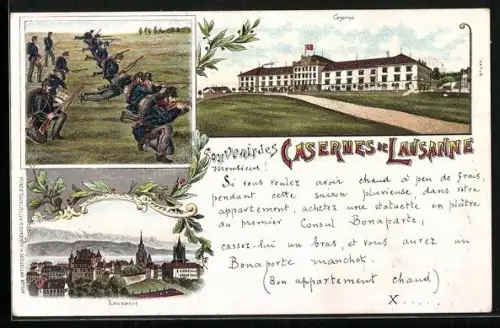 Caserne
Souvenir des CASERNES DE LAUSANNE
Monsieur!
Si vous voulez avoir chaud à peu de frais,
pendant cette saison pluvieuse dans votre
appartement, achetez une statuette en plâtre
du premier Consul Bonaparte,
cassez-lui un bras, et vous aurez un
Bonaparte manchot.
(Bon appartement chaud)
X.....
Lausanne